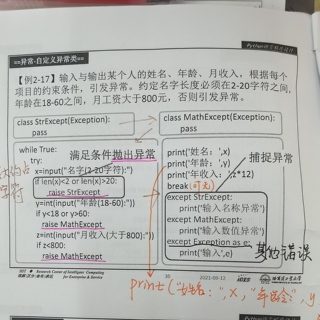 ==异常-自定义异常类==
【例2-17】输入与输出某个人的姓名、年龄、月收入，根据每个
项目的约束条件，引发异常。约定名字长度必须在2-20字符之间，
年龄在18-60之间，月工资大于800元，否则引发异常。
class StrExcept(Exception):
pass
class MathExcept(Exception):
pass
while True:
满足条件抛出异常
try:
x=input("名字(2-20字符):")
if len(x)<2 or len(x)>20:
raise StrExcept
y=int(input("年龄(18-60):"))
if y<18 or y>60:
raise MathExcept
z=int(input("月收入(大于800):"))
if z<800:
raise MathExcept
print('姓名：',x)
print('年龄：',y)
print('年收入：',z*12)
break
捕捉异常
except StrExcept:
print('输入名称异常')
except MathExcept:
print('输入数值异常')
except Exception as e:
print('输入',e)
其他错误
字符
Research Center of Intelligent Computing
for Enterprise & Service
2021-05-12
print("姓名：",x,"年龄：",y